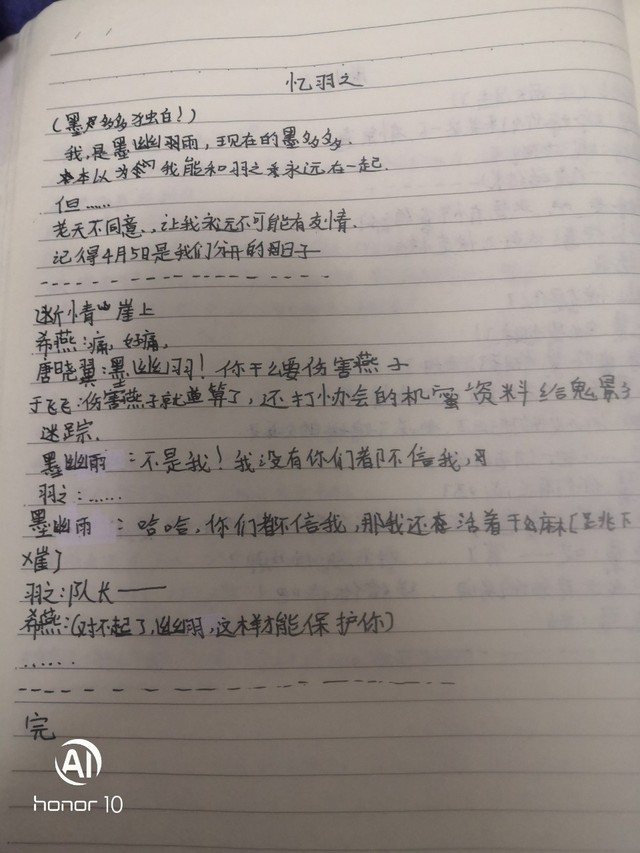 忆羽之
(墨多多独白!)
我,是墨幽羽雨,现在的墨多多.
本以为我能和羽之永远在一起.
但……
老天不同意、让我永远不可能有友情、
记得4月5日是我们分开的日子
断情崖上
希燕:痛,好痛,
唐晓翼:墨幽羽!你干么要伤害燕子
于飞飞:伤害燕子就算了,还打协会的机蜜资料给鬼影
迷踪.
墨幽雨:不是我!我没有你们都不信我,
羽之:……
墨幽雨:哈哈,你们都不信我,那我还在活着干么麻[跳下
崖]
羽之:队长——
希燕:(对不起了,幽羽,这样才能保护你)
……
完
AI
honor 10